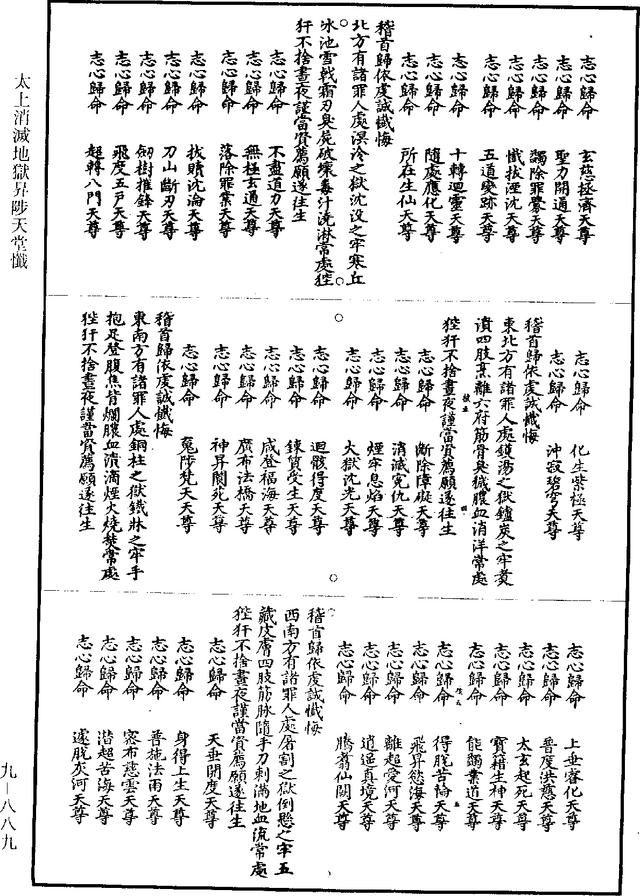 太上消滅地獄昇陟天堂懺
九—八八九
志心歸命　玄慈拯濟天尊
志心歸命　聖力開通天尊
志心歸命　蠲除罪纍天尊
志心歸命　懺拔湮沈天尊
志心歸命　五道變跡天尊
志心歸命　十轉迴靈天尊
志心歸命　隨處應化天尊
志心歸命　所在生仙天尊
稽首歸依虔誠懺悔
北方有諸罪人處溟泠之獄沈没之牢寒丘
冰池雪戟霜刃臭屍破壞毒汁洗淋常處狴
犴不捨晝夜謹當資薦願遂往生
志心歸命　不盡道力天尊
志心歸命　無極玄通天尊
志心歸命　落除罪業天尊
志心歸命　拔贖沈淪天尊
志心歸命　刀山斷刃天尊
志心歸命　劒樹摧鋒天尊
志心歸命　飛度五戸天尊
志心歸命　超轉八門天尊
志心歸命　化生紫極天尊
志心歸命　沖寂碧穹天尊
稽首歸依虔誠懺悔
東北方有諸罪人處鑊湯之獄鑪炭之牢煑
漬四肢烹離六府筋骨臭穢膿血消洋常處
狴犴不捨晝夜謹當資薦願遂往生
志心歸命　斷除障礙天尊
志心歸命　消滅寃仇天尊
志心歸命　煙牢息焰天尊
志心歸命　火獄沈光天尊
志心歸命　迴骸得度天尊
志心歸命　鍊質受生天尊
志心歸命　咸登福海天尊
志心歸命　廣布法橋天尊
志心歸命　神昇閬苑天尊
志心歸命　䰟陟梵天天尊
稽首歸依虔誠懺悔
東南方有諸罪人處銅柱之獄鐵牀之牢手
抱足登腹焦背爛膿血潰滴煙火燒焚常處
狴犴不捨晝夜謹當資薦願遂往生
志心歸命　上垂睿化天尊
志心歸命　普度洪慈天尊
志心歸命　太玄起死天尊
志心歸命　寶籍生神天尊
志心歸命　能蠲業道天尊
志心歸命　得脱苦輪天尊
志心歸命　飛昇慾海天尊
志心歸命　離超愛河天尊
志心歸命　逍遥真境天尊
志心歸命　騰翥仙闕天尊
稽首歸依虔誠懺悔
西南方有諸罪人處屠割之獄倒懸之牢五
藏皮膚四肢筋脉隨手刀刺滿地血流常處
狴犴不捨晝夜謹當資薦願遂往生
志心歸命　天垂開度天尊
志心歸命　身得上生天尊
志心歸命　普施法雨天尊
志心歸命　密布慈雲天尊
志心歸命　潛超苦海天尊
志心歸命　遽脱灰河天尊